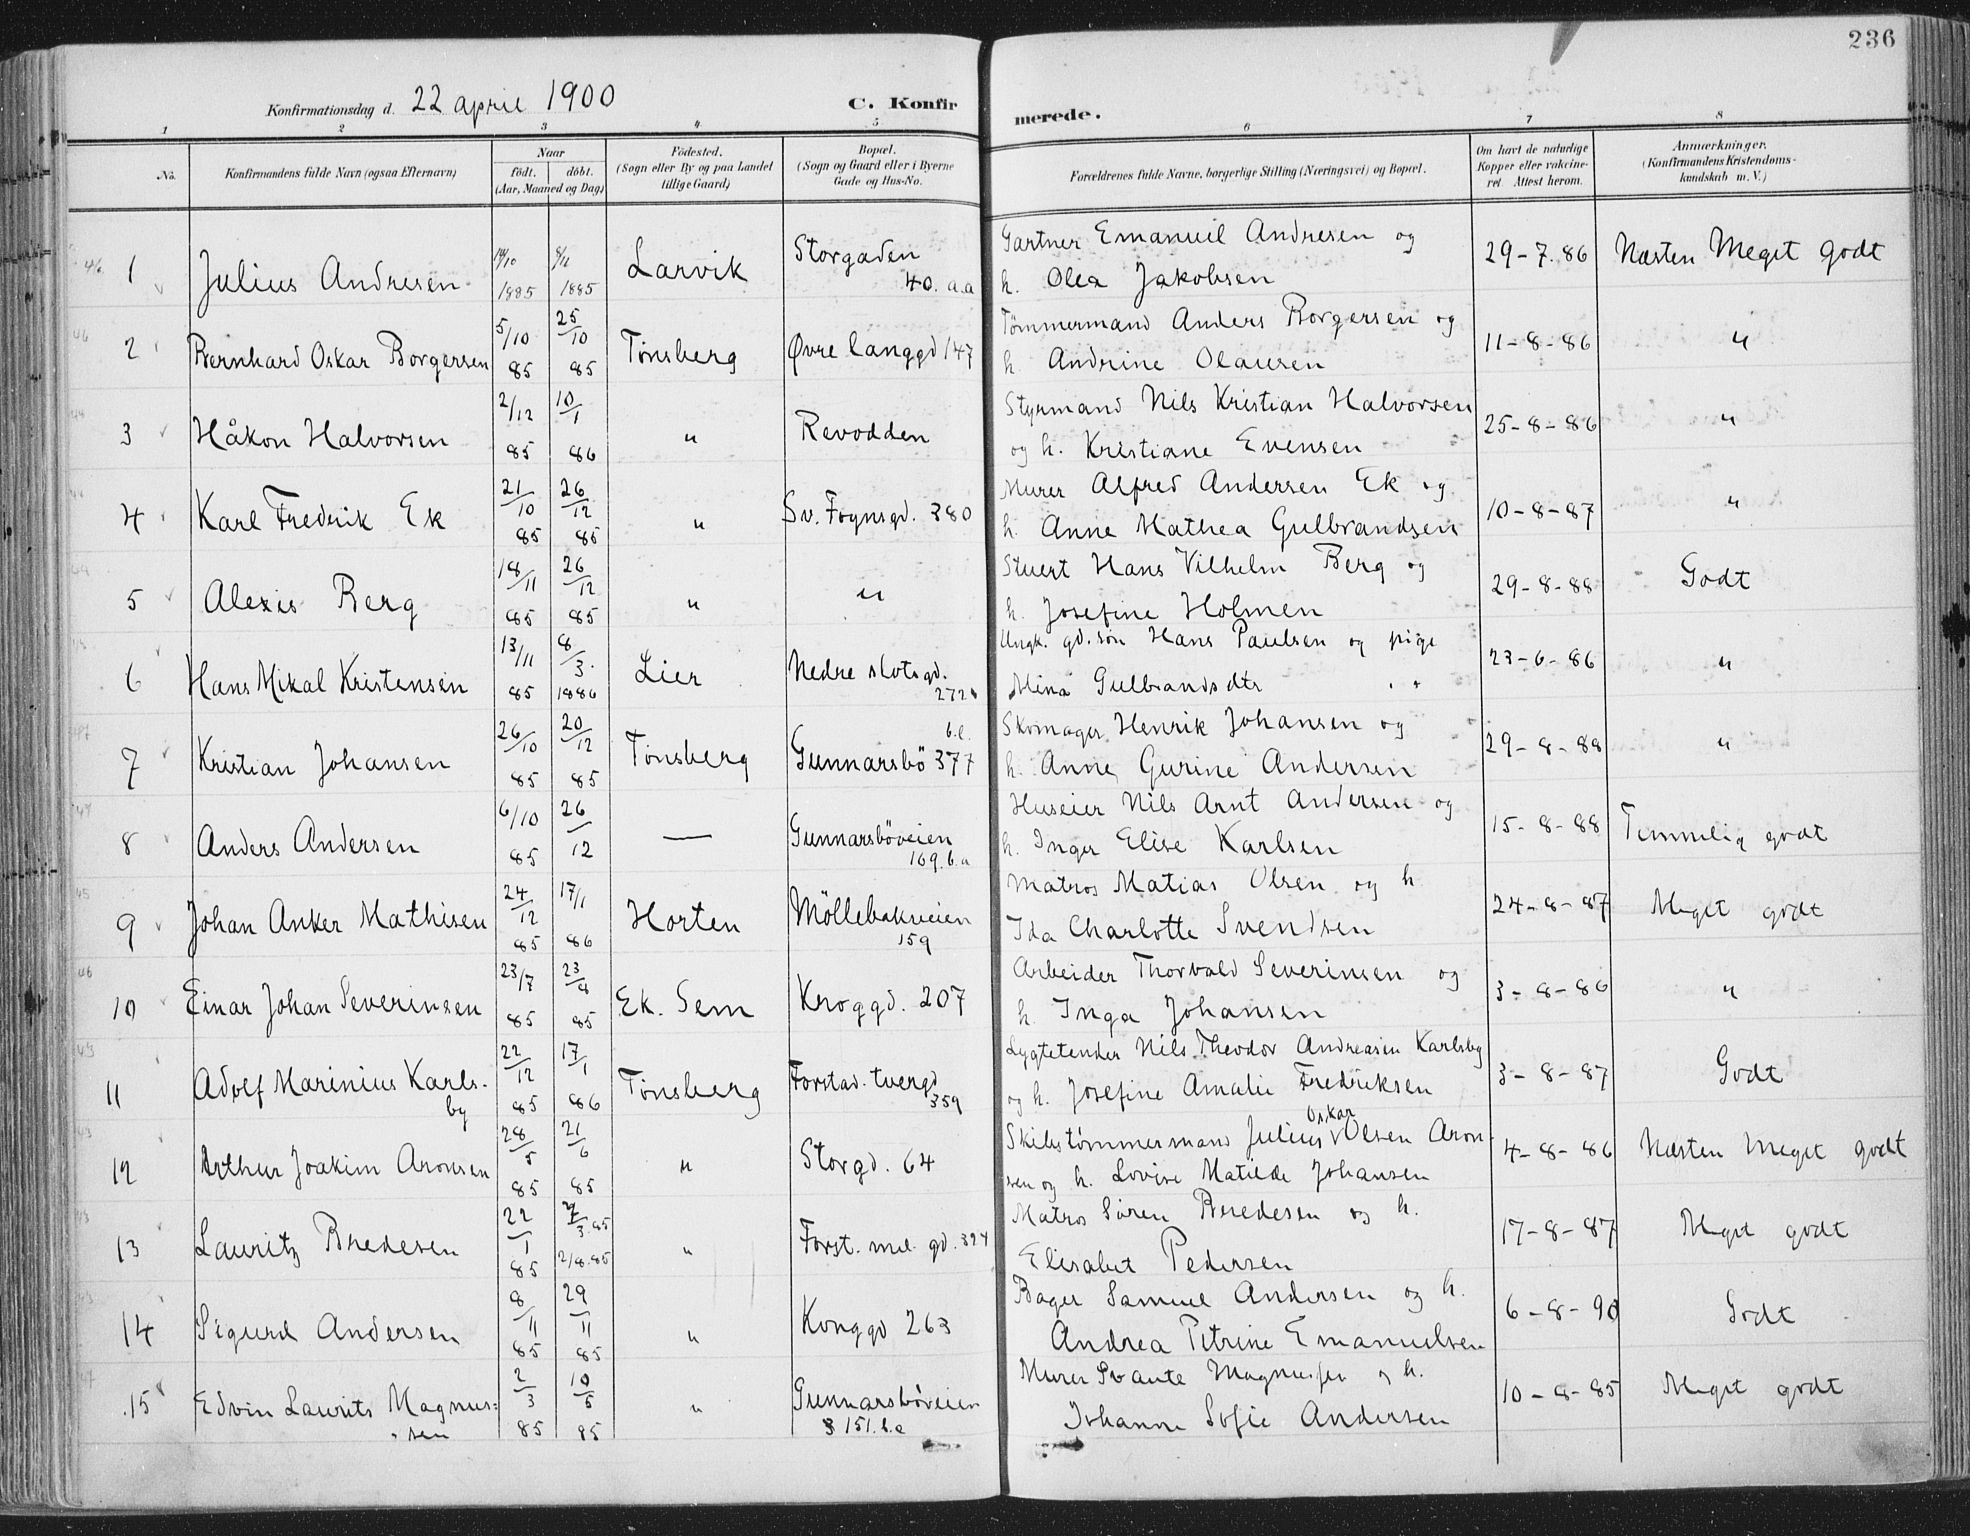 236
Konfirmationsdag d. 22 april 1900 C. Konfirmerede.
1 2 3 4 5 6 7 8
No. Konfirmandens fulde Navn (ogsaa Efternavn) Naar født. døbt. (Aar, Maaned og Dag) Fødested. (Sogn eller By og paa Landet tillige Gaard) Bopæl. (Sogn og Gaard eller i Byerne Gade og Hus-No. Forældrenes fulde Navne, borgerlige Stilling (Næringsvei) og Bopæl. Om havt de naturlige Kopper eller vakcineret Attest herom. Anmærkninger. (Konfirmandens Kristendomskundskab m. V.)
1 Julius Andresen 14/10 1885 6/12 1885 Larvik Storgaden 40. a.a Gartner Emanuil Andresen og
h. Olea Jakobsen 29-7.86 Næsten Meget godt
2 Bernhard Oskar Borgersen 5/10 85 25/10 85 Tønsberg Øvre langgd 147 Tømmermand Anders Borgersen og
h. Andrine Olausen 11-8-86 "
3 Håkon Halvorsen 2/12 85 10/1 86 " Revodden Styrmand Nils Kristian Halvorsen
og h. Kristiane Evensen 25-8-86 "
4 Karl Fredrik Ek 21/10 85 26/12 85 " Sv. Foynsgd. 380 Murer Alfred Andersen Ek og
h. Anne Mathea Gulbrandsen 10-8-87 "
5 Alexis Berg 18/11 85 26/12 85 " " Stuert Hans Vilhelm Berg og
h. Josefine Holmen 29-8-88 Godt
6 Hans Mikal Kristensen 13/11 85 8/3 1886 Lier Nedre slotsgd. 272 Ungk. gd.søn Hans Paulsen og pige
Mina Gulbrandsdtr 23-6-86 "
7 Kristian Johansen 26/10 85 20/12 85 Tønsberg Gunnarsbö 377 b.l. Skomager Henrik Johansen og
h. Anne Gurine Andersen 29-8-88 "
8 Anders Andersen 6/10 85 26/12 — Gunnarsböveien 169.b.a Huseier Nils Arnt Andersen og
h. Inger Elise Karlsen 15-8-88 Temmelig godt
9 Johan Anker Mathisen 24/12 85 17/1 86 Horten Möllebakveien 159 Matros Matias Olsen og h
Ida Charlotte Svendsen 24-8-87 Meget godt
10 Einar Johan Severinsen 23/7 85 23/8 85 Ek. Sem Kroggd. 207 Arbeider Thorvald Severinsen og
h. Inga Johansen 3-8-86 "
11 Adolf Marinius Karlsby 22/12 85 17/1 86 Tønsberg Forstad. tvergd 359 Lygtetender Nils Theodor Andreasen Karlsby
og h. Josefine Amalie Fredriksen 3-8-87 Godt
12 Arthur Joakim Aronsen 28/5 85 21/6 85 " Storgd. 64 Skibstømmermand Julius Oskar Olsen Aron-
sen og h. Lovise Matilde Johansen 4-8-86 Næsten Meget godt
13 Lauritz Bredesen 22/1 85 2/8.85 " Forst. mel. gd. 324 Matros Sören Bredesen og h.
Elisabet Pedersen 17-8-87 Meget godt
14 Sigurd Andersen 8/11 85 29/11 85 " Konggd 263 Bager Samuel Andersen og h.
Andrea Petrine Emanuelsen 6-8-90 Godt
15 Edvin Laurits Magnus-
sen 2/3 85 10/5 85 " Gunnarsbøveien 151.b.a Murer Svante Magnussen og h.
Johanne Sofie Andersen 10-8-85 Meget godt